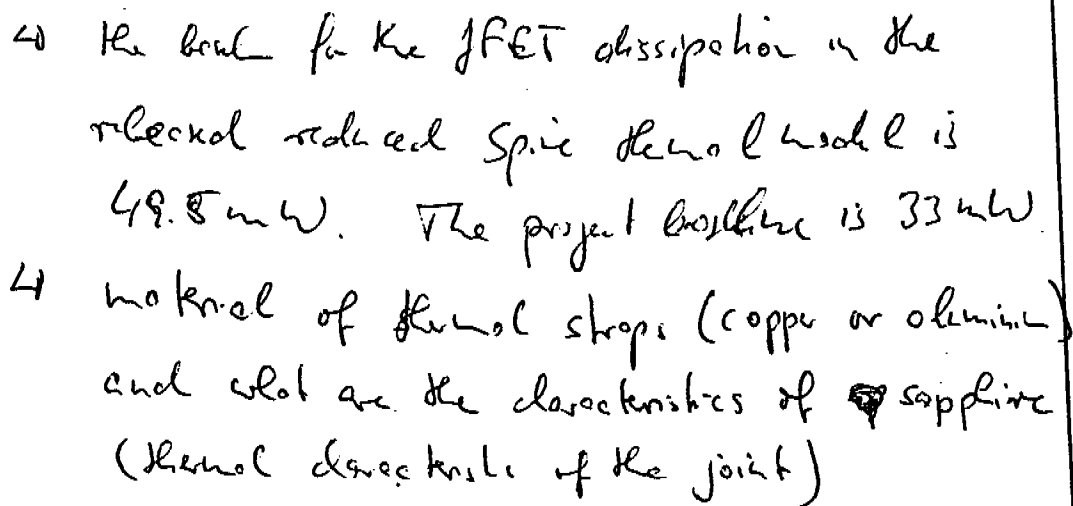 the          for the JFET dissipation in the
released reduced Spire thermal model is
49.5 mW. The project baseline is 33 mW
material of thermal straps (copper or aluminium)
and what are the characteristics of sapphire
(thermal characteristic of the joint)